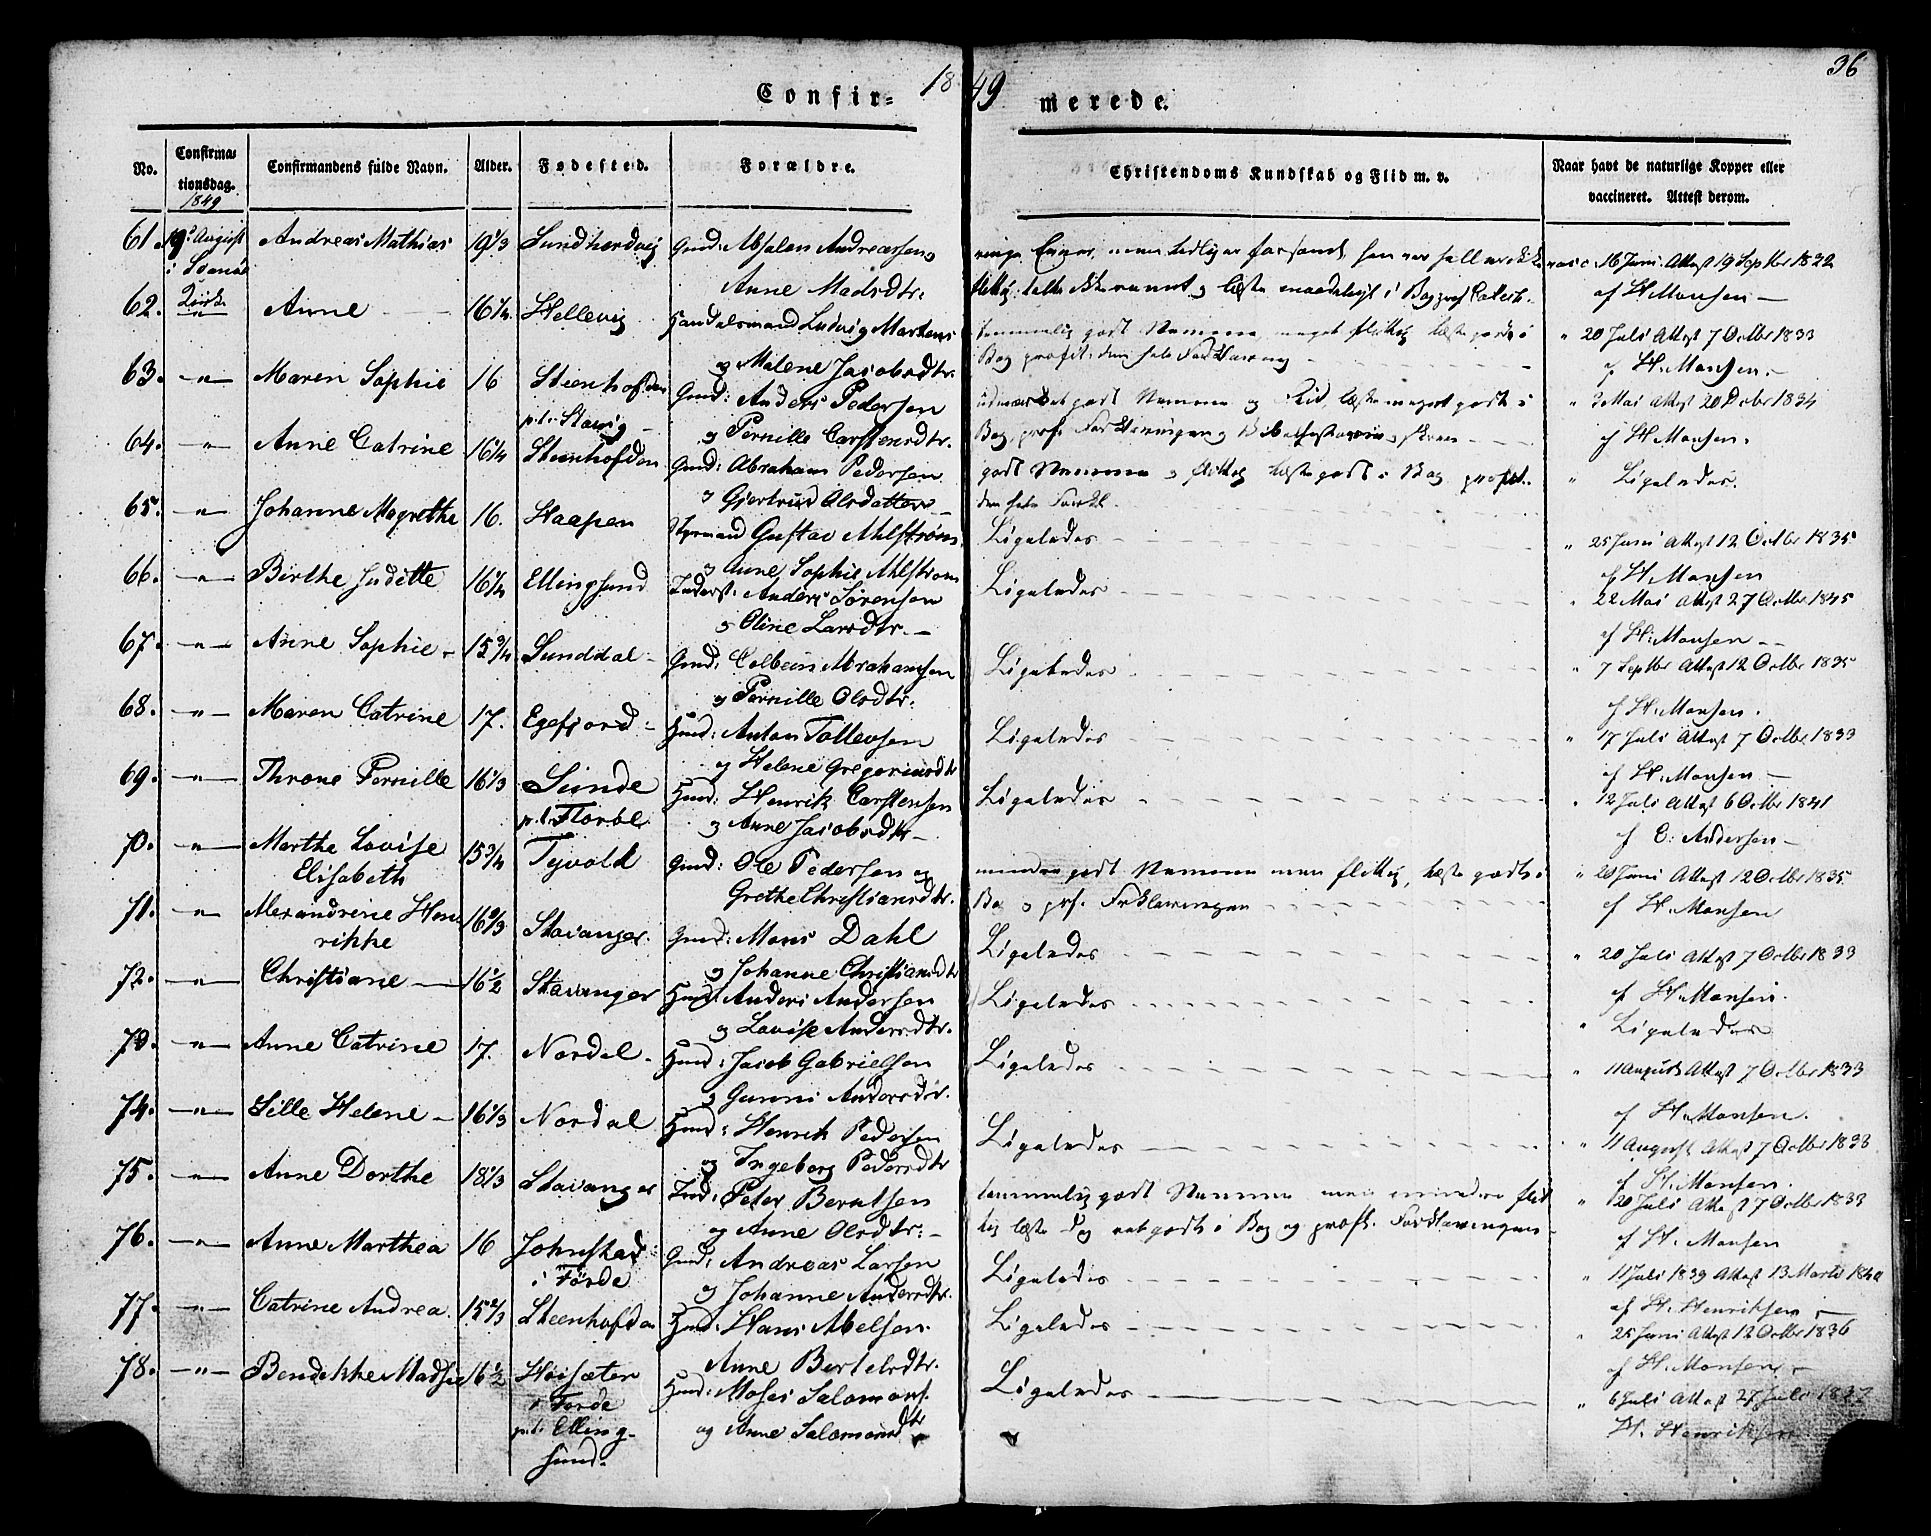 1849
36
Confir= merede.
No.
Confirma-
tionsdag.
1849
Confirmandens fulde Navn.
Alder.
Fødested.
Forældre.
Christendoms Kundskab og Flid m. v.
Naar havt de naturlige Kopper eller
vaccineret. Attest derom.
61. August Andreas Mathias 19 1/3 Gmd: Absalon Andreassen
Anne Madsdtr.
16 Juni Attest 19 Septbr 1832
af H Monsen —
62. Anne 16 1/4 Hellevig Handelsmand Ludvig Martens
og Malene Jacobsdtr.
20 Juli Attest 7 Octbr 1833
af H. Monsen.
63. — " — Maren Sophie 16 Steenhofden
p.t. Stavig
Gmd: Anders Pedersen
og Pernille Carstensdtr.
3 Mai Attest 20 Decbr 1834
af H Monsen.
64. " Anne Catrine 16 1/4 Steenhofden Gmd: Abraham Pedersen
og Gjertrud Olsdatter
Ligeledes.
65. — " — Johanne Magrethe 16. Styrmand Gustav Ahlstrøm
og Anne Sophie Ahlstrøm
Ligeledes
25 Juni Attest 12 Octbr 1835
af H Monsen
66. — " — Birthe Juditte 16 1/4 Ellingsund Inderst: Anders Sørensen
og Oline Larsdtr. —
Ligeledes
22 Mai Attest 27 Octbr 1845
af H: Monsen —
67. — " — Anne Sophie 15 3/4 Sunddal Gmd: Colbein Abrahamsen
og Pernille Olsdtr.
Ligeledes
7 Septbr Attest 12 Octbr 1835
af H. Monsen.
68. — " — Maren Catrine 17. Egefjord Hmd: Anton Tollevsen
og Helene Gregoriusdtr
Ligeledes
17 Juli Attest 7 Octbr 1833
af H: Monsen —
69. — " — Throne Pernille 16 1/3 Sunde
p.t. Florøe
Hmd: Henrik Carstensen
og Anne Jacobsdtr —
Ligeledes
12 Juli Attest 6 Octbr 1841
af E. Andersen —
70. — " — Marthe Lovise
Elisabeth
15 3/4 Tyvold Gmd: Ole Pedersen og
Grethe Christiansdtr.
mindre godt Nemme men flittig, læste godt i
Bog og prf. Forklaringen
20 Juni Attest 12 Octbr 1835
af H. Monsen
71. — " — Alexandrine Hen
rikke
16 2/3 Stavanger. Gmd: Mons Dahl
og Johanne Christiansdtr
Ligeledes
20 Juli Attest 7 Octbr 1833
af H. Monsen.
72. — " — Christiane — 16 1/2 Stavanger Hmd: Anders Andersen
og Lovise Andersdtr.
Ligeledes
" Ligeledes
73. — " — Anne Catrine 17. Nordal Hmd: Jacob Gabrielsen
og Gunni Andersdtr.
Ligeledes
11 August Attest 7 Octbr 1833
af H. Monsen.
74. — " — Sille Helene — 16 1/3 Nordal Hmd: Henrik Pedersen
og Ingeborg Pedersdtr
Ligeledes
11 August Attest 7 Octbr 1833
af H. Monsen.
75. — " — Anne Dorthe 18 1/3 Stavanger Ind: Peter Berntsen
og Anne Olsdtr: —
temmelig godt Nemme men mindre flit
tig læste dog ret godt i Bog og prof. Forklaringen
20 Juli Attest 7 Octbr 1833
af H. Monsen
76. — " — Anne Marthea 16 Johnstad
i Førde
Gmd: Andreas Larsen
og Johanne Andersdtr.
Ligeledes
11 Juli 1839 Attest 13 Marts 1840
af H. Henriksen —
77. — " — Catrine Andrea. 15 2/3 Steenhofden Hmd: Hans Abelsen.
Anne Bertelsdtr.
Ligeledes
25 Juni Attest 12 Octbr 1836
af H. Monsen —
78. — " — Bendikke Madsie 16 1/2 Høisæter
i Førde
p.t. Elling-
sund.
Hmd: Moses Salomons.
og Anne Salomonsdtr
Ligeledes
6 Juli Attest 27 Juli
H. Henriksen